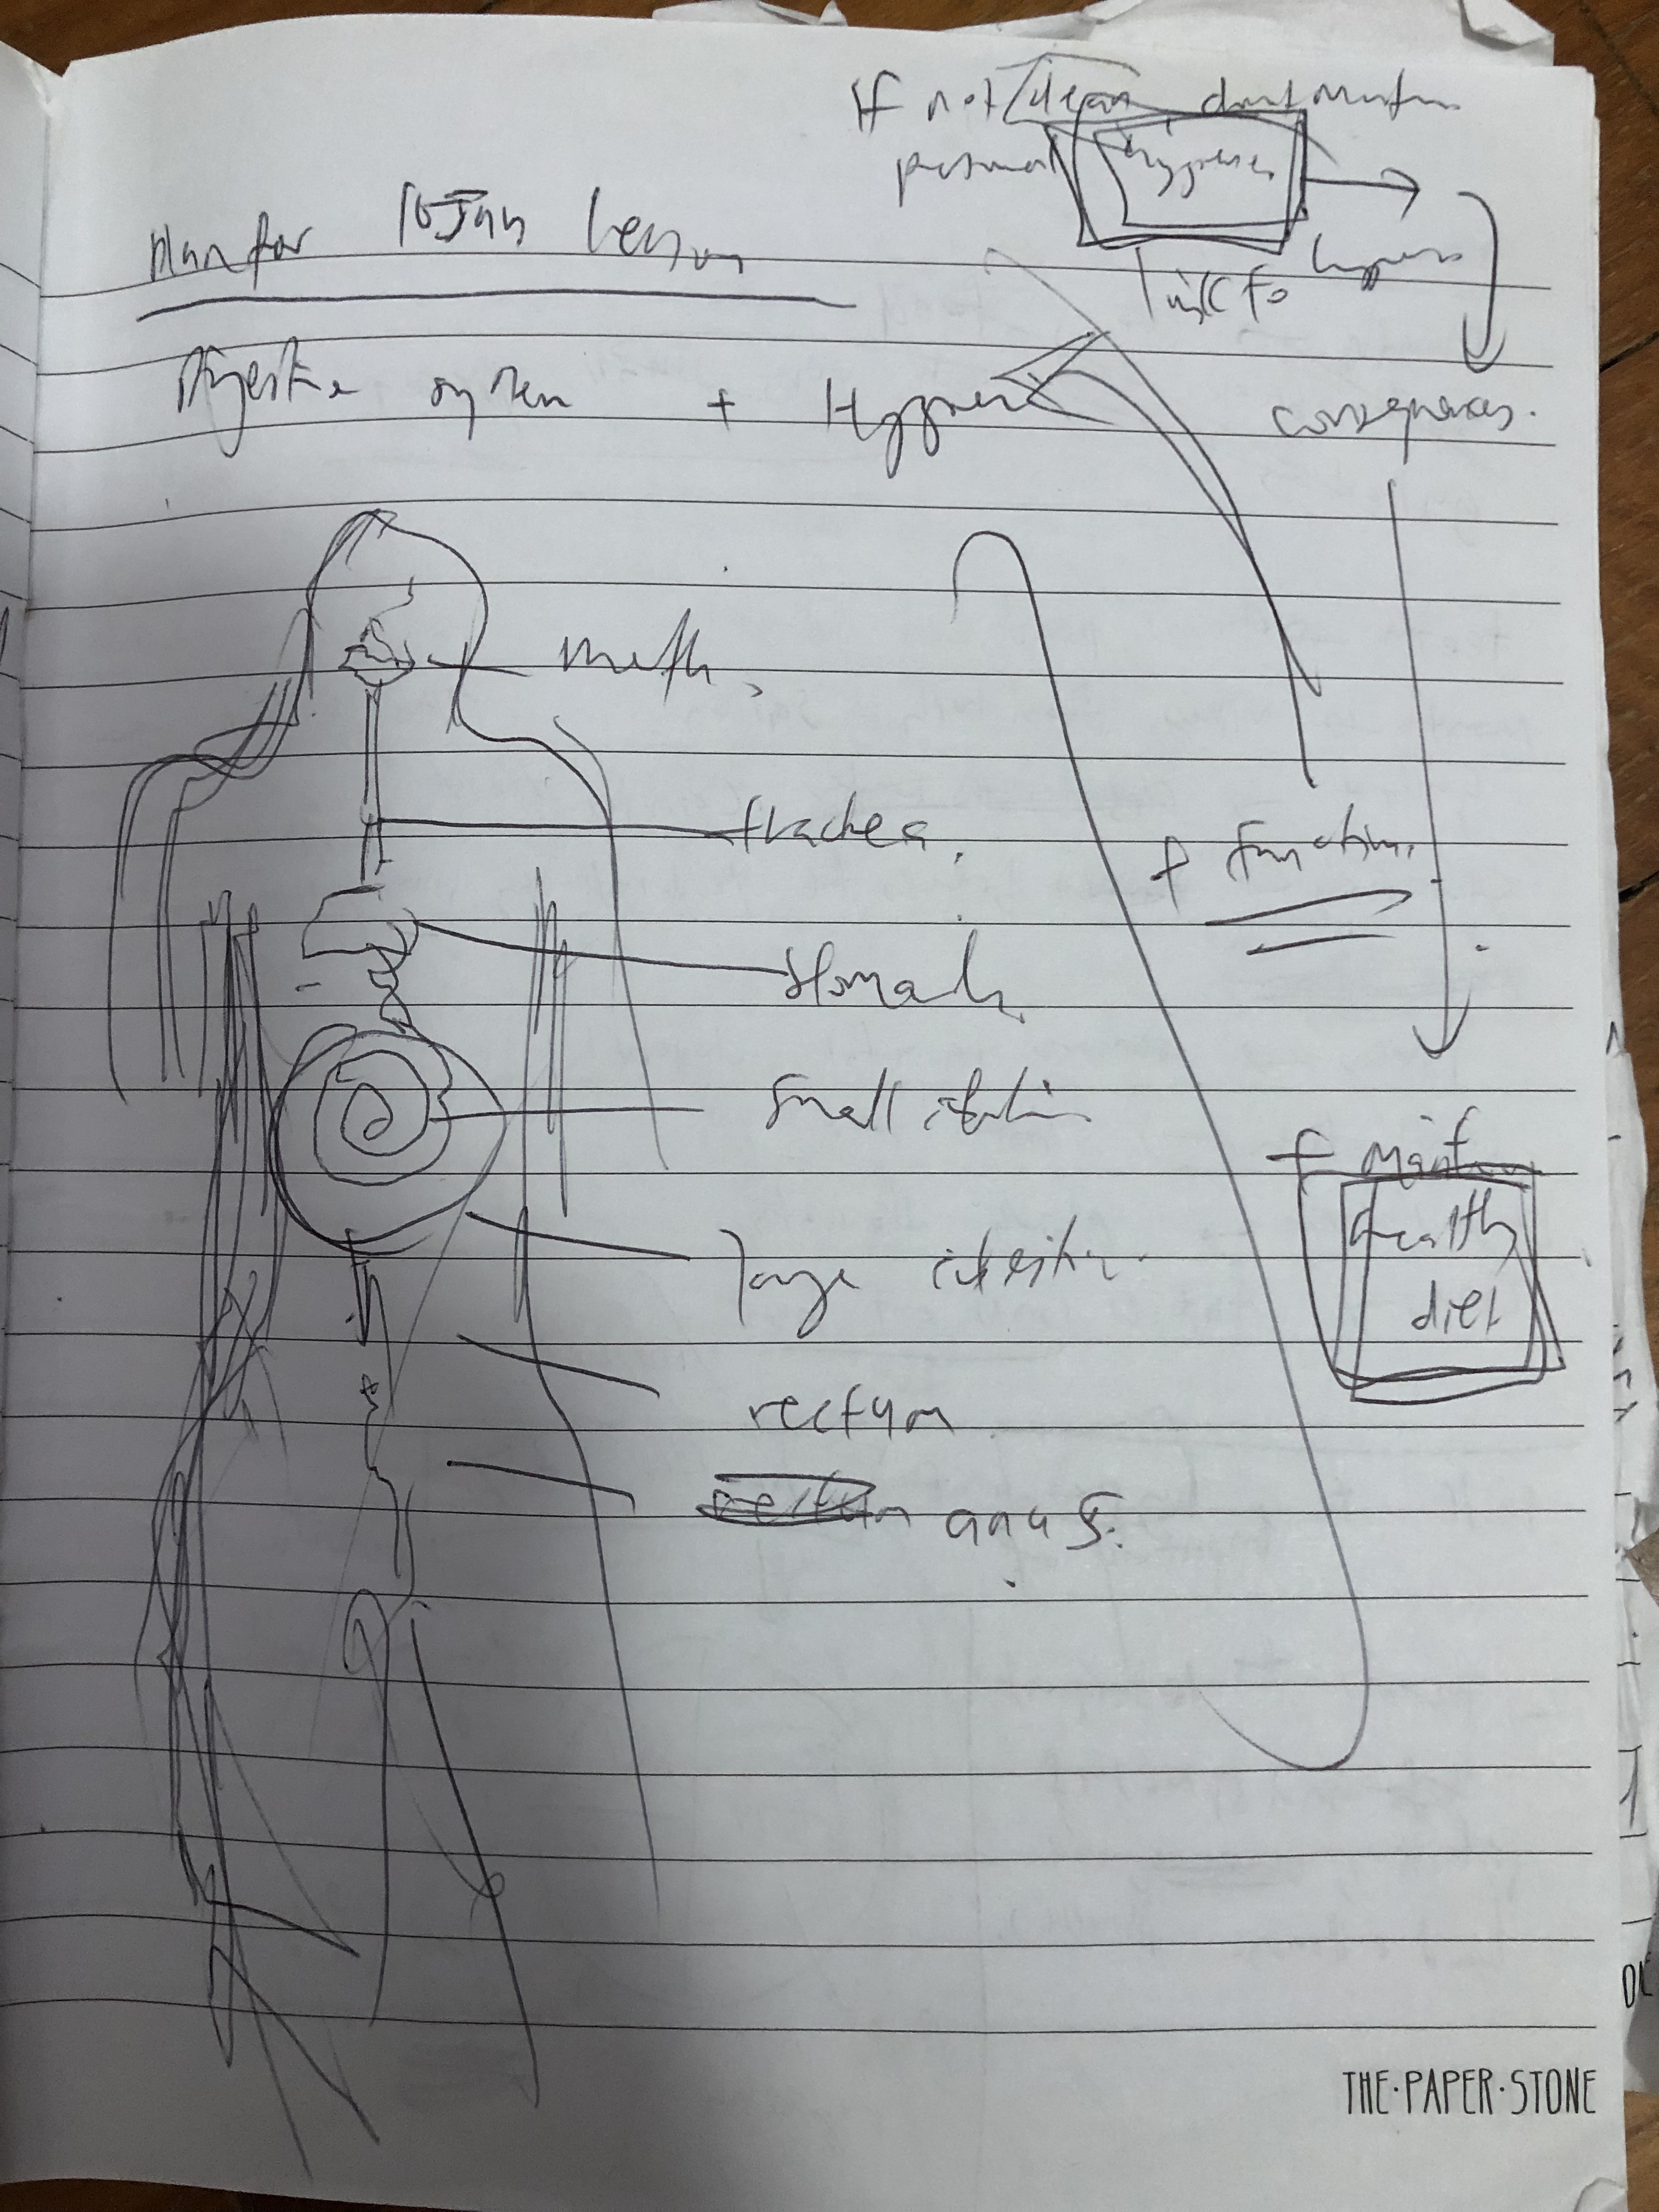 If not clean don't maintain
personal hygiene
link to hygiene
Plan for 10 Jan lesson
Digestive system + Hygiene
consequences.
mouth,
trachea,
+ function.
stomach
small intestine
+ maintain
healthy
diet
large intestine
rectum
rectum anus.
THE·PAPER·STONE